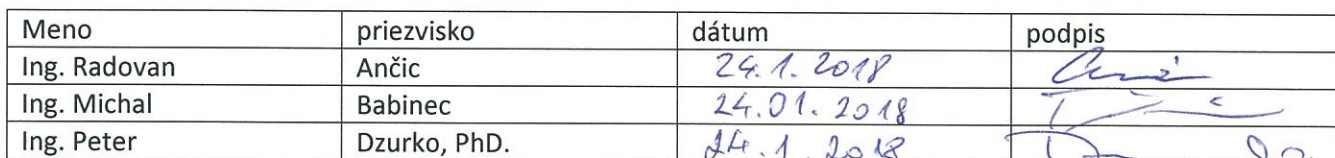 Meno priezvisko dátum podpis
Ing. Radovan Ančic 24.1.2018
Ing. Michal Babinec 24.01.2018
Ing. Peter Dzurko, PhD. 24.1.2018